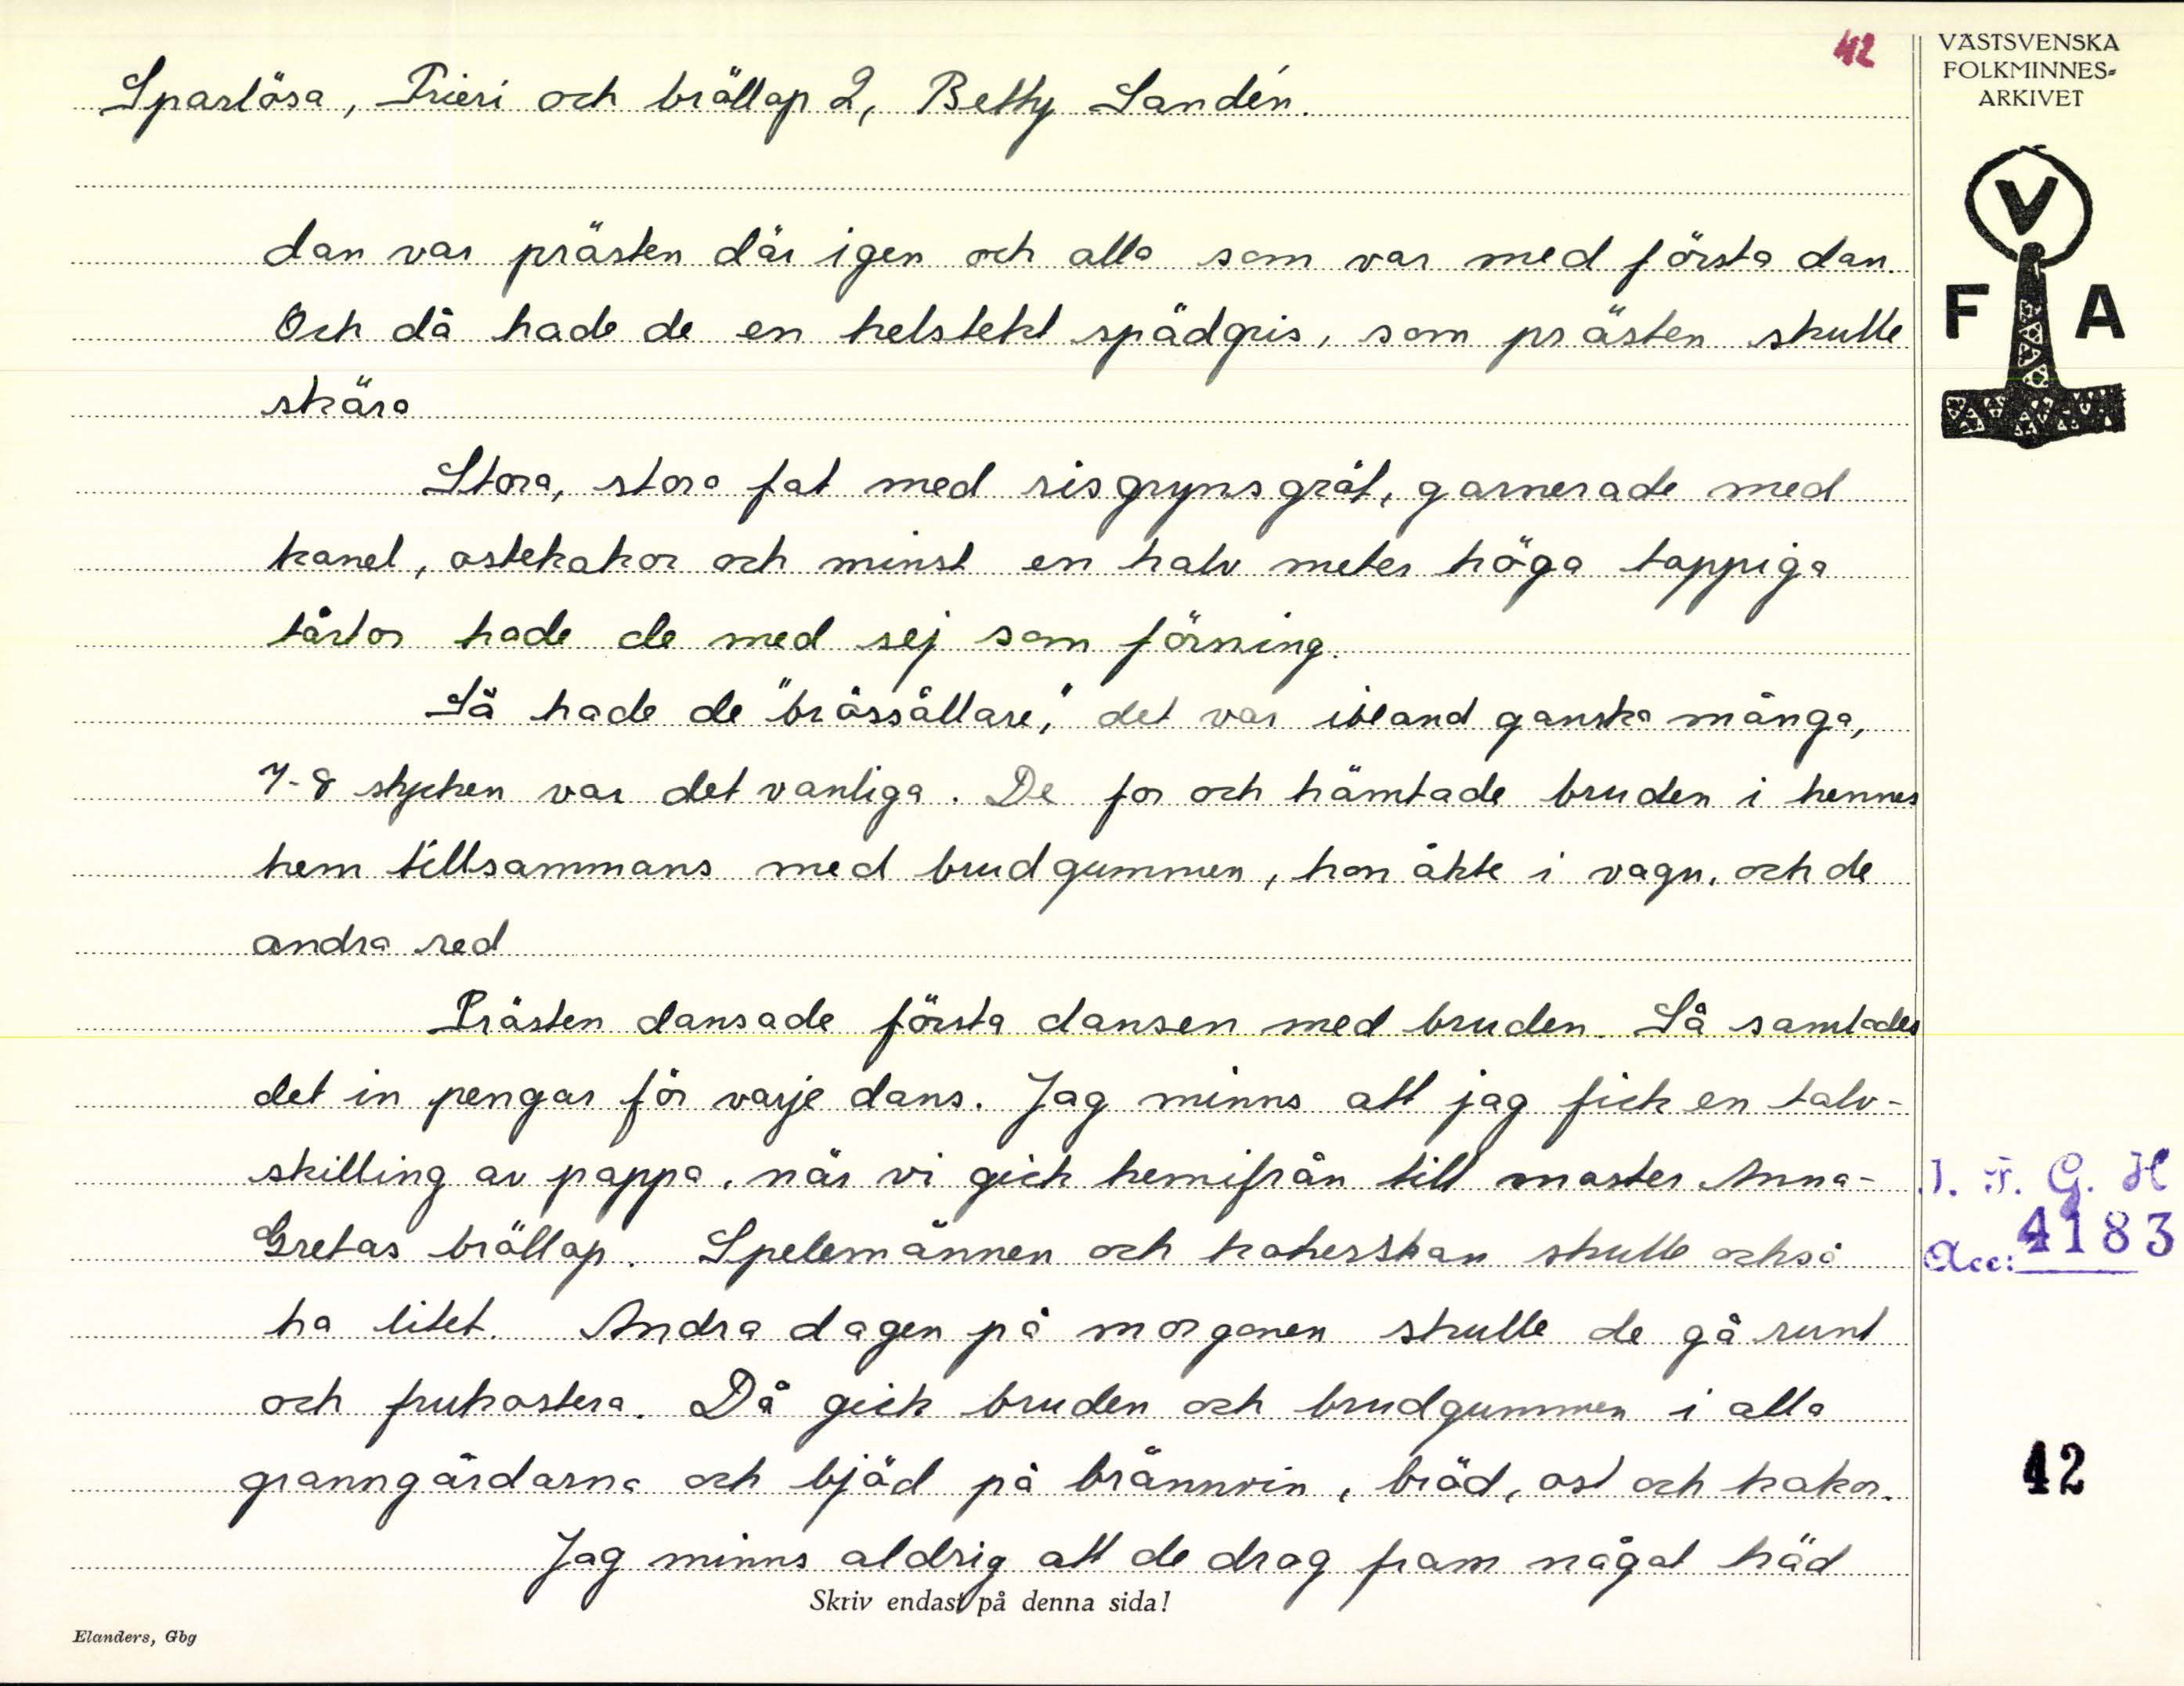 42
VÄSTSVENSKA
FOLKMINNES-
ARKIVET
V
F A
Sparlösa, Frieri och bröllop 2, Betty Sandén.
dan var prästen där igen och alla som var med första dan.
Och då hade de en helstekt spädgris, som prästen skulle
skära
Stora, stora fat med risgrynsgröt, garnerade med
kanel, ostekakor och minst en halv meter höga toppiga
tårtor hade de med sej som förning.
Så hade de "brössällare," det var ibland ganska många,
7-8 stycken var det vanliga. De for och hämtade bruden i hennes
hem tillsammans med brudgummen, hon åkte i vagn, och de
andra red
Prästen dansade första dansen med bruden. Så samlades
det in pengar för varje dans. Jag minns att jag fick en halv-
skilling av pappa, när vi gick hemifrån till moster Anna-
Gretas bröllop. Spelemännen och kokerskan skulle också
ha litet. Andra dagen på morgonen skulle de gå runt
och frukostera. Då gick bruden och brudgummen i alla
granngårdarna och bjöd på brännvin, bröd, ost och kakor.
Jag minns aldrig att de drog fram något träd
I. F. G. H
Acc: 4183
42
Skriv endast på denna sida!
Elanders, Gbg